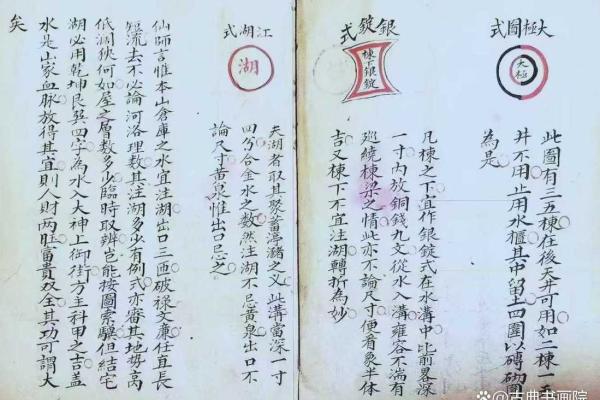 大極圖式
太極
此圖有三五棟在後天井可用如二棟一天
井不用止用水櫃其中留土四圍以磚砌圓
為是
銀錠式
棟下銀錠
凡棟之下宜作銀錠式在水溝中比前畧深
一寸內放銅錢九文從水入溝雍容不湍有
巡繞棟梁之情此亦不論尺寸便看象半体
吉又棟下不宜注湖轉折為妙
江湖式
湖
夫湖者取其聚蓄渟瀦之义此溝當深一寸
四分合金水之数然注湖不忌黃泉出口不
論尺寸黃泉惟出口忌之
仙師言惟本山倉庫之水宜注湖出口三匝破祿文廉任直長
短流去不必論河洛理数其注湖多少有例式亦審其地势高
低濶狹何如屋之層数多少臨時取辨岂能按圖索驥但結宅
湖必用乾坤艮巽四字為水入大神上御街方主科甲之吉盖
水是山家血脉放得其宜則人財兩旺富貴双全其功可謂大
矣
@古典书画院